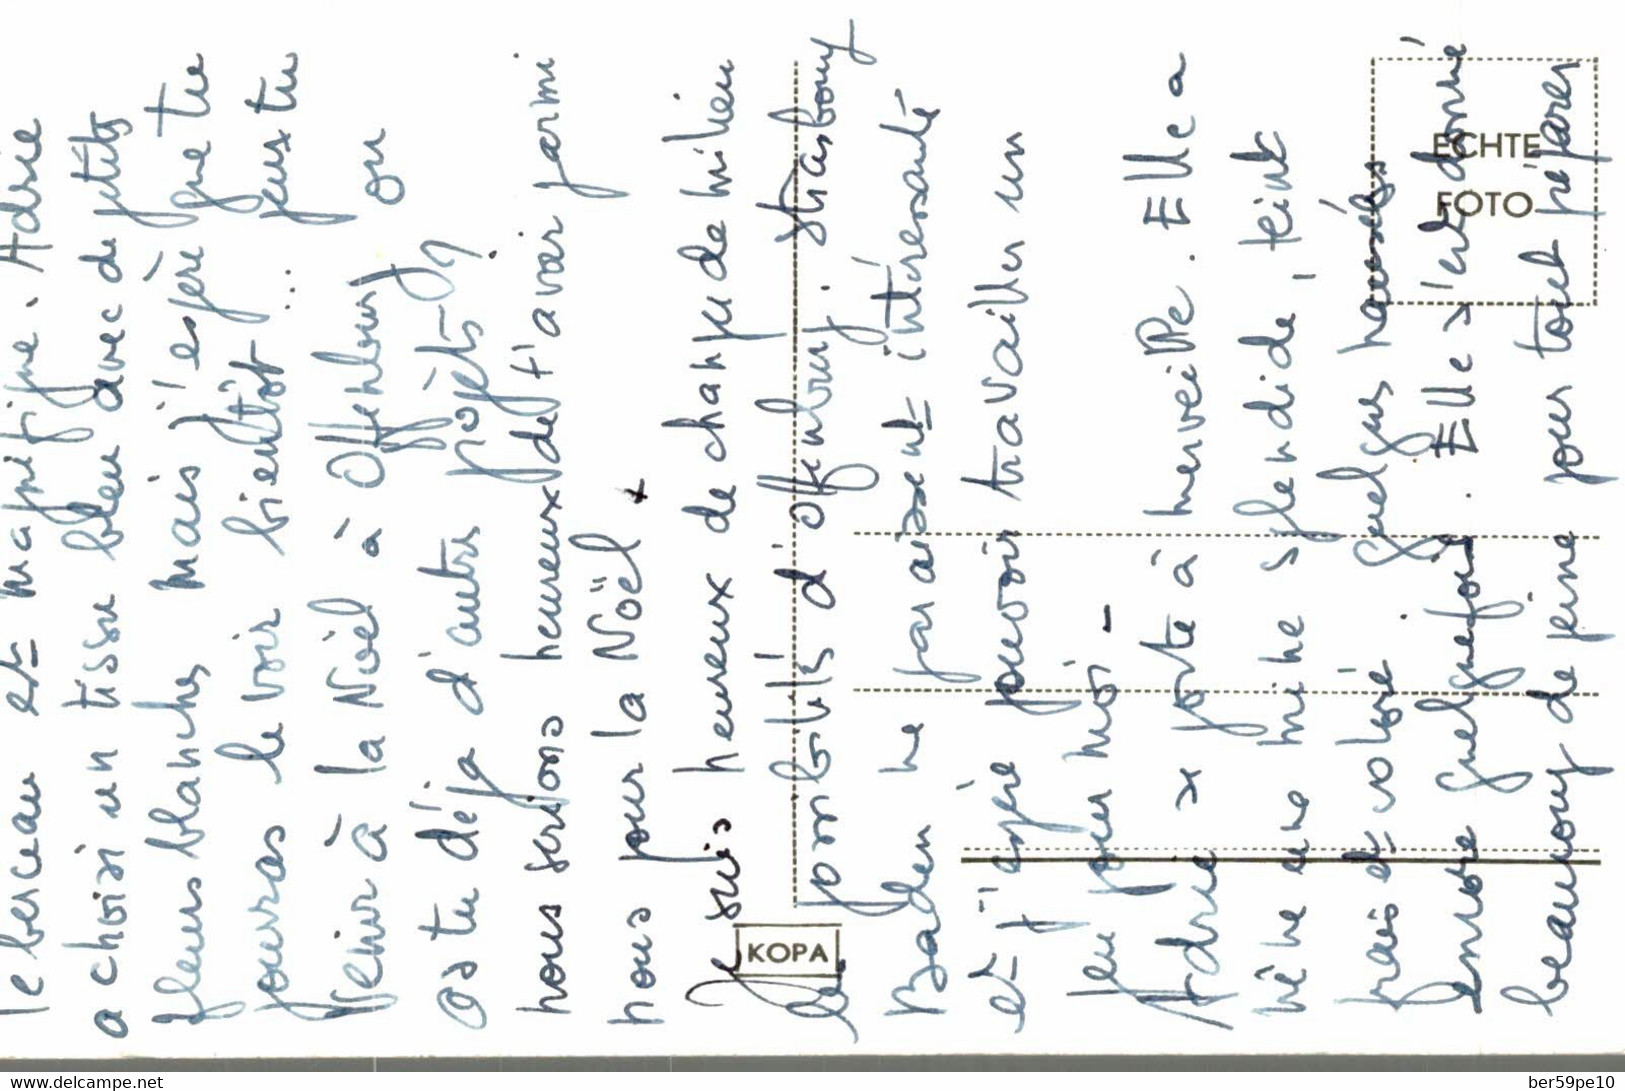 le berceau est magnifique. Adrie
a choisi un tissu bleu avec de petites
fleurs blanches mais j'espère que tu
pourras le voir bientôt... peux tu
venir à la Noël à Offenburg ou
as tu déjà d'autres projets ?
nous serions heureux de t'avoir parmi
nous pour la Noël.
Je suis heureux de changer de milieu
les possibilités d'Offenburg. Strasbourg
Baden me paraissent intéressante
et j'espère pouvoir travailler un
peu pour moi -
Adrie se porte à merveille. Elle a
même une mine splendide, teint
frais et coloré. quelques nausées
encore quelquefois. Elle s'est donné
beaucoup de peine pour tout préparer
KOPA
ECHTE
FOTO
www.delcampe.net
ber59pe10